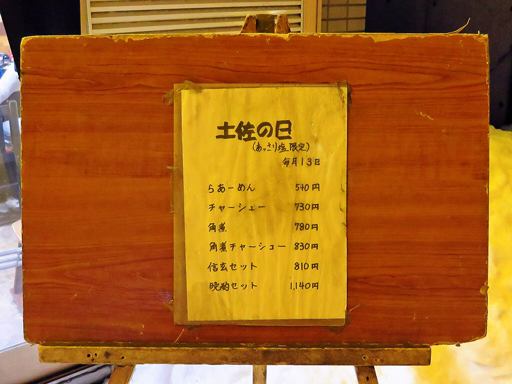 土佐の日
(あっさり塩限定)
毎月13日
らあーめん 540円
チャーシュー 730円
角煮 780円
角煮チャーシュー 830円
信玄セット 810円
晩酌セット 1,140円